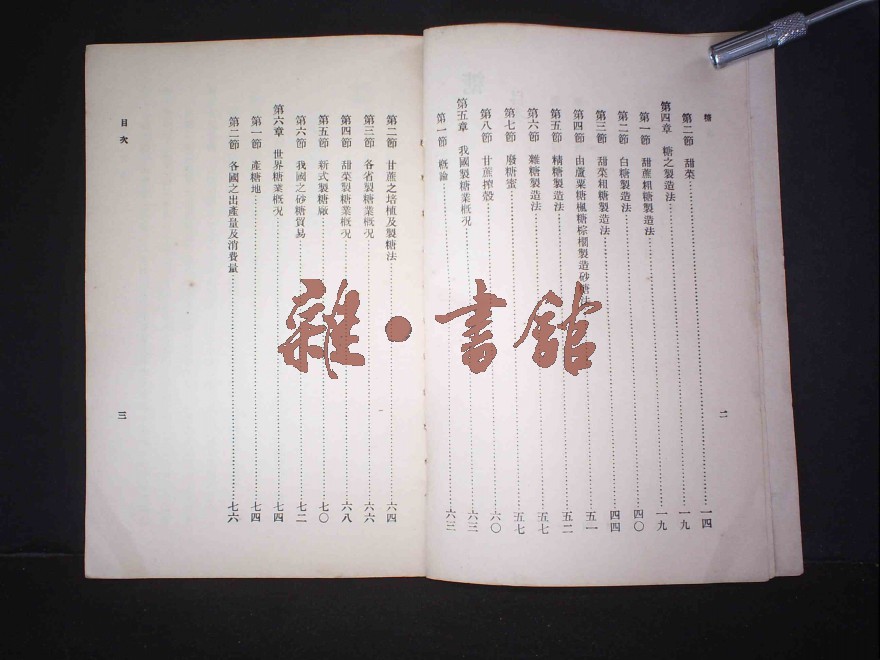 糖
二
第二節 甜菜……一四
第四章 糖之製造法……一九
第一節 甜蔗粗糖製造法……一九
第二節 白糖製造法……四〇
第三節 甜菜粗糖製造法……四四
第四節 由蘆粟糖楓糖棕櫚製造砂糖法……五一
第五節 精糖製造法……五二
第六節 雜糖製造法……五七
第七節 廢糖蜜……五七
第八節 甘蔗搾殼……六〇
第五章 我國製糖業概況……六三
第一節 概論……六三
第二節 甘蔗之培植及製糖法……六四
第三節 各省製糖業概況……六六
第四節 甜菜製糖業概況……六八
第五節 新式製糖廠……七〇
第六節 我國之砂糖貿易……七二
第六章 世界糖業概況……七四
第一節 產糖地……七四
第二節 各國之出產量及消費量……七六
目次
三
雜·書館